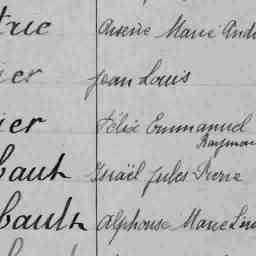 trie Arsène Marie And
ier Jean Louis
ier Félix Emmanuel
Raymon
bault Israël Jules Pierre
bault Alphonse Marie Lin